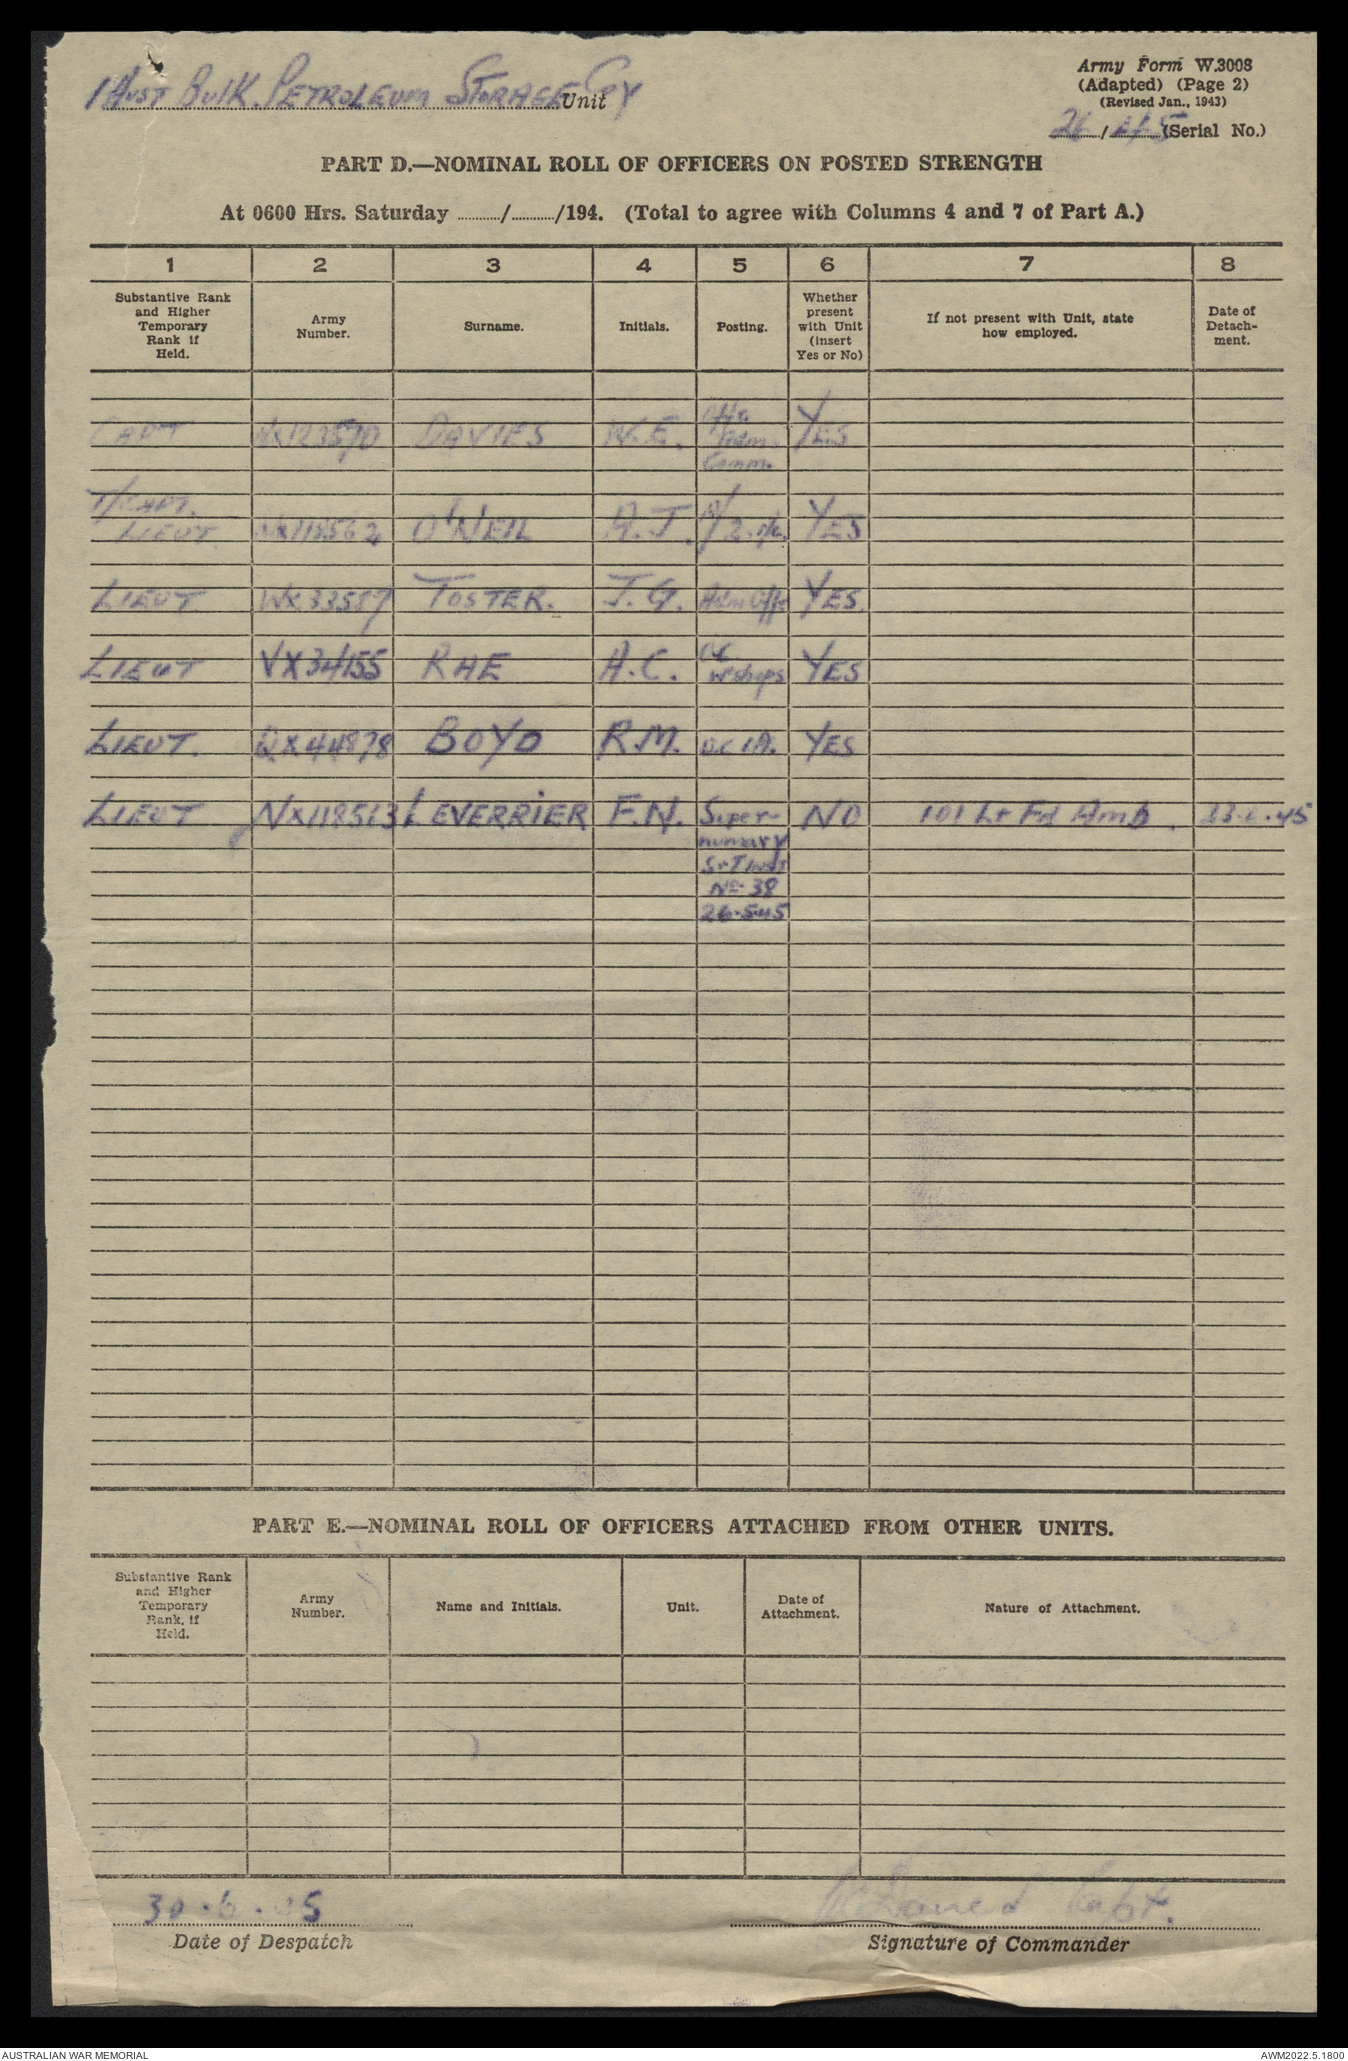 1 Aust Bulk Petroleum Storage Coy Unit
Army Form W.3008
(Adapted) (Page 2)
(Revised Jan., 1943)
26 / (Serial No.)
PART D.—NOMINAL ROLL OF OFFICERS ON POSTED STRENGTH
At 0600 Hrs. Saturday ........../........../194. (Total to agree with Columns 4 and 7 of Part A.)
1 2 3 4 5 6 7 8
Substantive Rank and Higher Temporary Rank if Held. Army Number. Surname. Initials. Posting. Whether present with Unit (insert Yes or No) If not present with Unit, state how employed. Date of Detachment.
CAPT NX123570 DAVIES W.E. Comm. YES
T/CAPT.
LIEUT NX118562 O'NEIL A.J. YES
LIEUT WX33587 TOSTER. J.G. Adm Offr YES
LIEUT VX34155 RAE A.C. OC Wshops YES
LIEUT. QX44878 BOYD R.M. YES
LIEUT NX118513 LEVERRIER F.N. Super- NO 101 Lt Fd Amb.
numary
S & T Inst
No. 38
26.5.45
PART E.—NOMINAL ROLL OF OFFICERS ATTACHED FROM OTHER UNITS.
Substantive Rank and Higher Temporary Rank, if Held. Army Number. Name and Initials. Unit. Date of Attachment. Nature of Attachment.
30.6.45 Capt.
Date of Despatch Signature of Commander
AUSTRALIAN WAR MEMORIAL AWM2022.5.1800